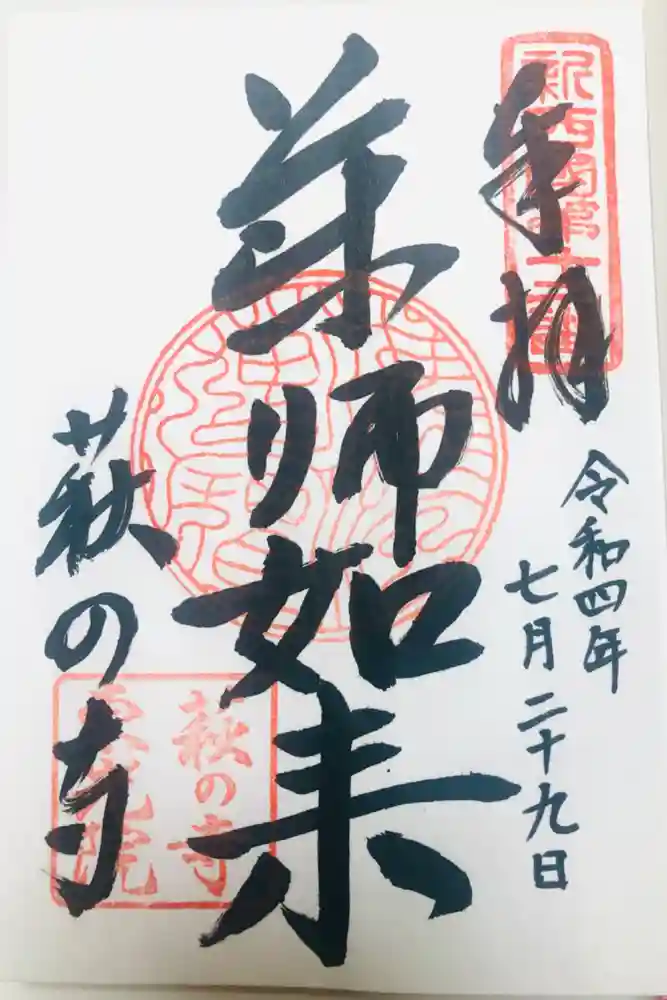 奉拝
令和四年
七月二十九日
薬師如来
萩の寺
新西国第十二番
萩の寺